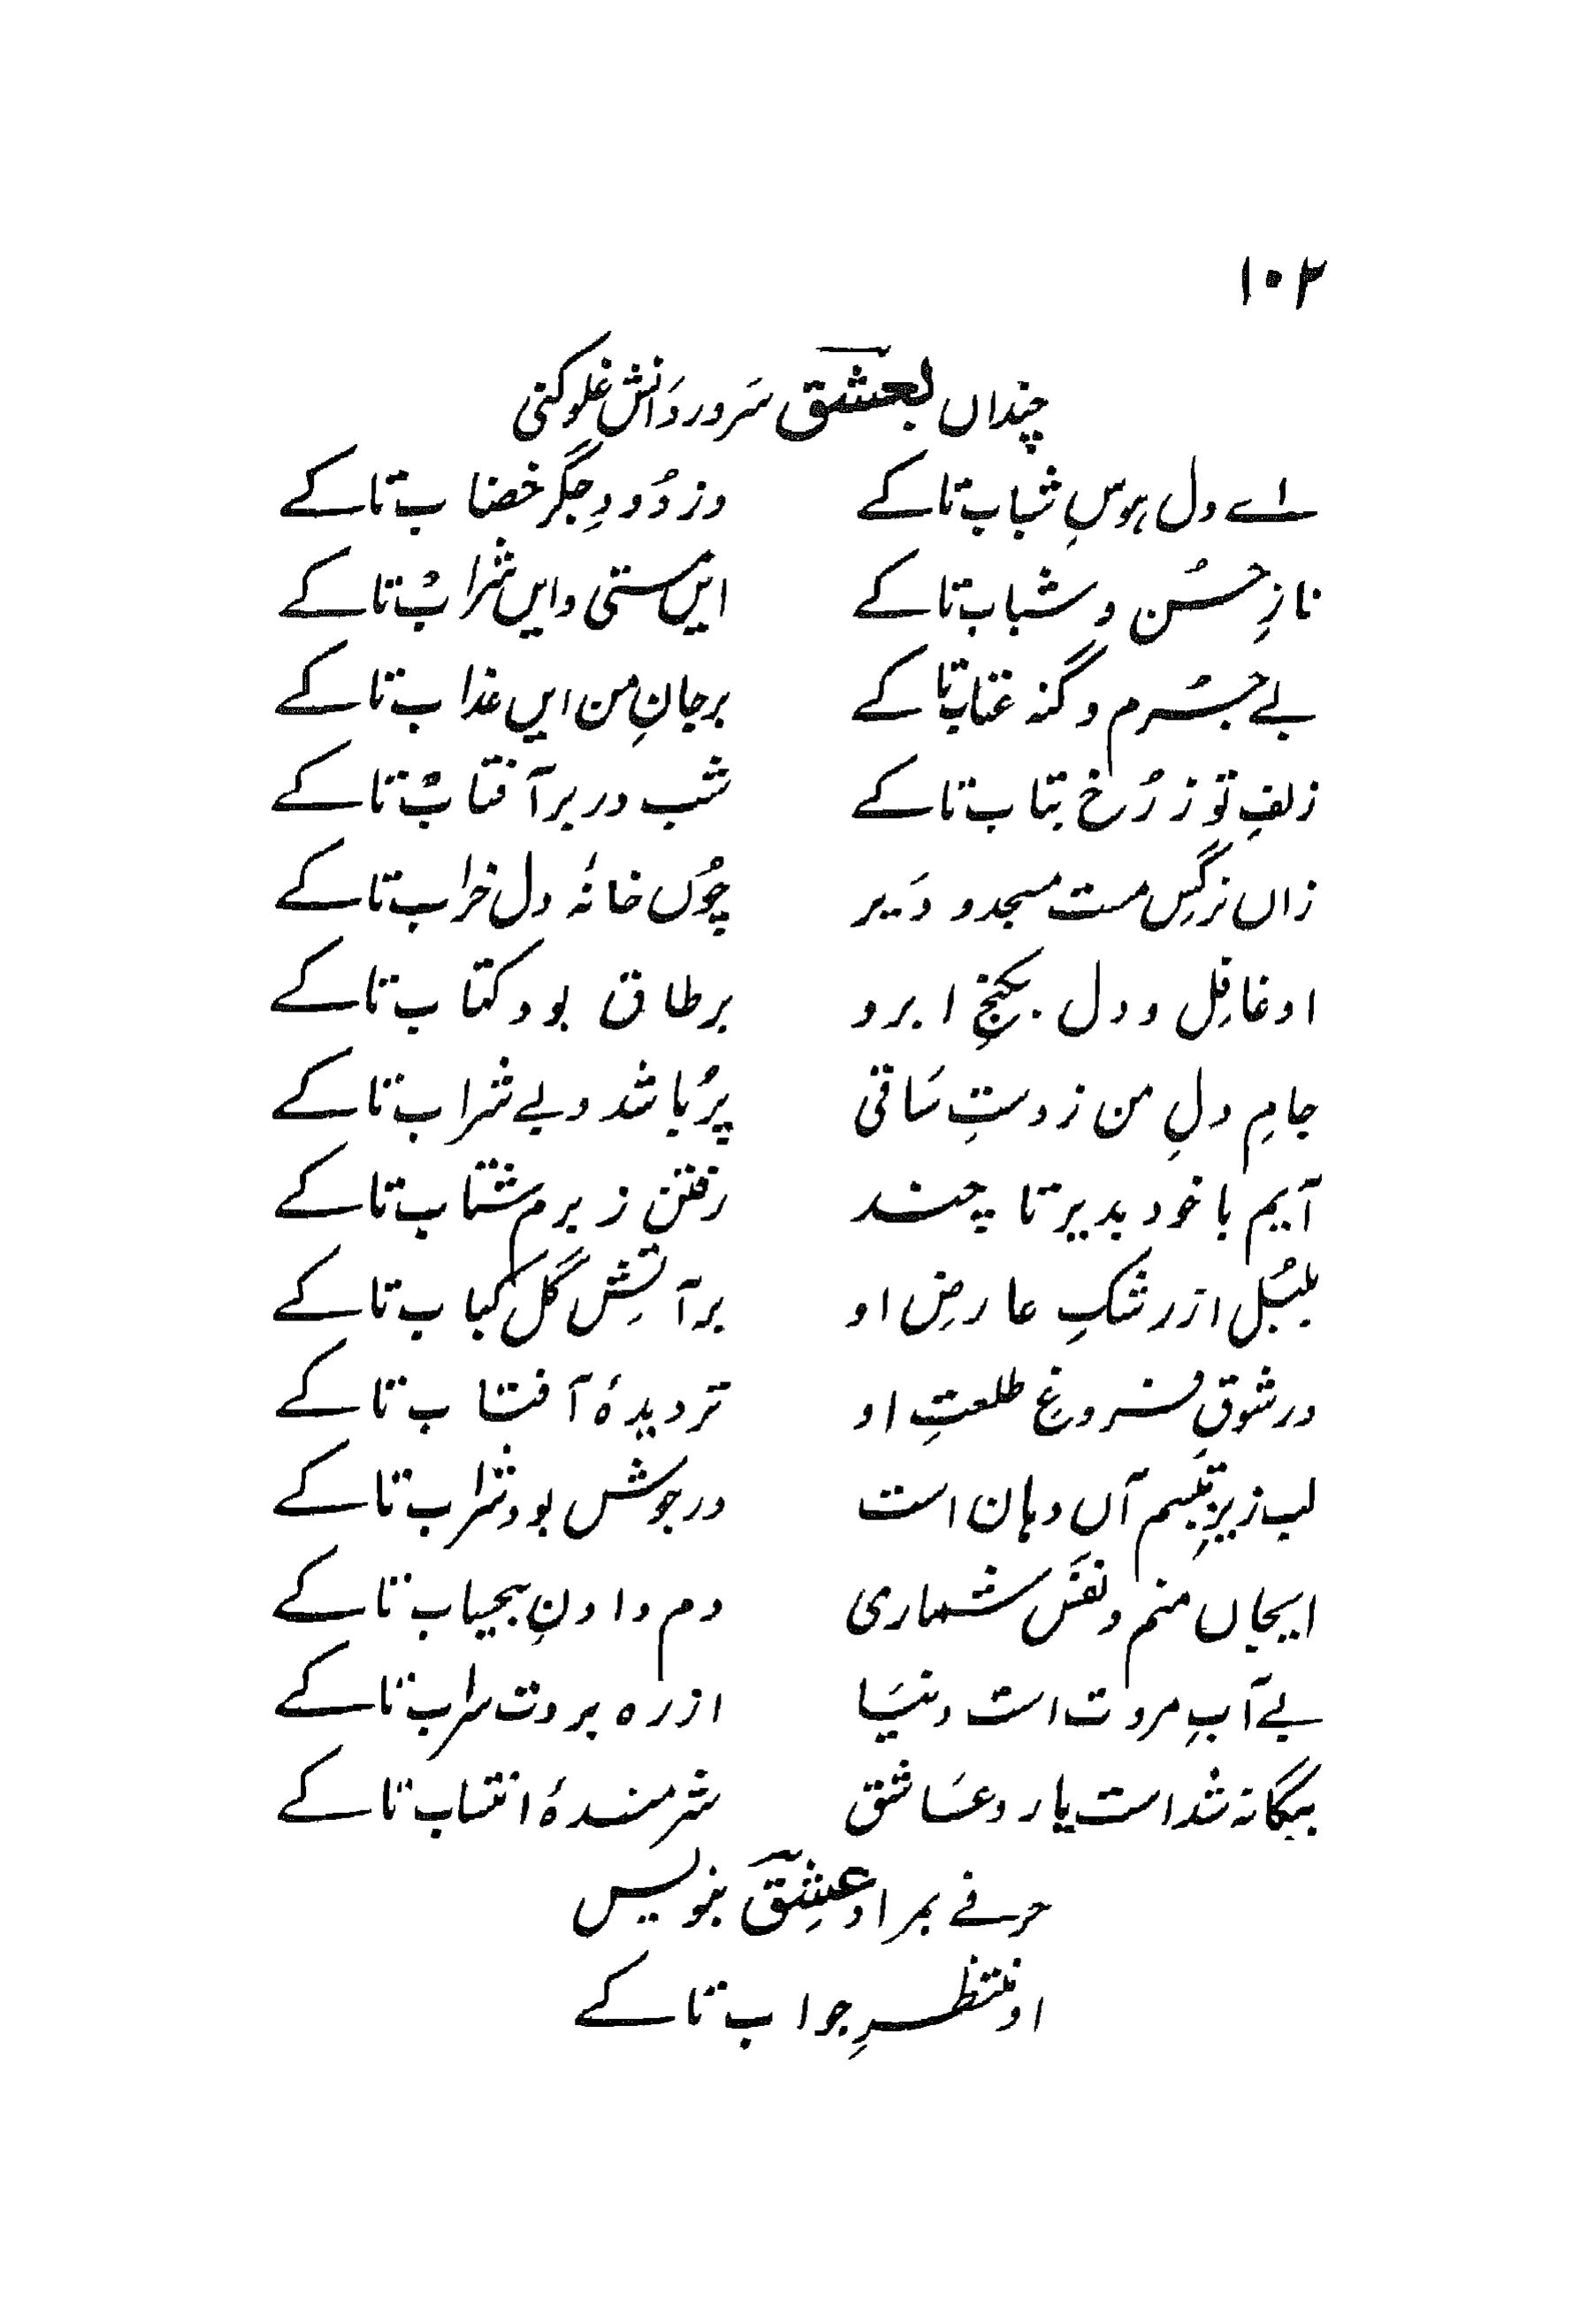 ۱۰۲
چنداں بعشق سَرور دَانش غلو کنی
اے دل ہوسِ شباب تا کے وز دُودِ جگر خضاب تا کے
نازِ حسُن و شباب تا کے ایں مستی و ایں شراب تا کے
بے جُرم و گنہ عتاب تا کے بر جانِ من ایں عذاب تا کے
زلفِ تو ز رُخ بتاب تا کے شب در بر آفتاب تا کے
زاں نرگسِ مست مسجد و دَیر چُوں خانۂ دل خراب تا کے
او غافِل و دل بکنجِ ابرو بر طاق بود کتاب تا کے
جامِ دلِ من ز دستِ سَاقی پُر باشد و بے شراب تا کے
آیم با خود بدیر تا چند رفتن ز برم شتاب تا کے
بلبُل از رشکِ عارضِ او بر آتشِ گل کباب تا کے
در شوقِ فروغِ طلعتِ او تر دیدۂ آفتاب تا کے
لب زیرِ تبَسم آں دہان است در جوش بود شراب تا کے
ایجاں منم و نفَس شماری دم دادنِ بیحیاب تا کے
بے آبِ مروت است دنیَا از رہ بردت سراب تا کے
بیگانہ شد است یار و عَاشق شرمندۂ انتساب تا کے
حرفے بمراد عشِق بنویس
او منتظرِ جواب تا کے